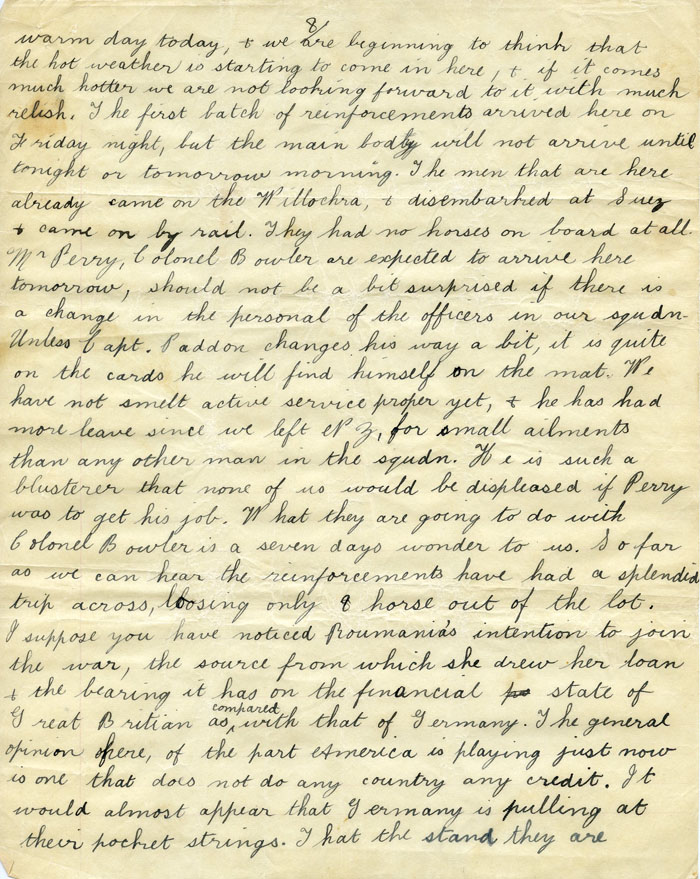 8/
warm day today, & we are beginning to think that
the hot weather is starting to come in here, & if it comes
much hotter we are not looking forward to it with much
relish. The first batch of reinforcements arrived here on
Friday night, but the main body will not arrive until
tonight or tomorrow morning. The men that are here
already came on the Willochra, & disembarked at Suez
& came on by rail. They had no horses on board at all.
Mr Perry, Colonel Bowler are expected to arrive here
tomorrow, should not be a bit surprised if there is
a change in the personal of the officers in our squdn.
Unless Capt. Paddon changes his way a bit, it is quite
on the cards he will find himself on the mat. We
have not smelt active service proper yet, & he has had
more leave since we left NZ, for small ailments
than any other man in the squdn. He is such a
blusterer that none of us would be displeased if Perry
was to get his job. What they are going to do with
Colonel Bowler is a seven days wonder to us. So far
as we can hear the reinforcements have had a splendid
trip across, loosing only 8 horse out of the lot.
I suppose you have noticed Roumania's intention to join
the war, the source from which she drew her loan
& the bearing it has on the financial state of
Great Britian as compared with that of Germany. The general
opinion here, of the part America is playing just now
is one that does not do any country any credit. It
would almost appear that Germany is pulling at
their pocket strings. That the stand they are